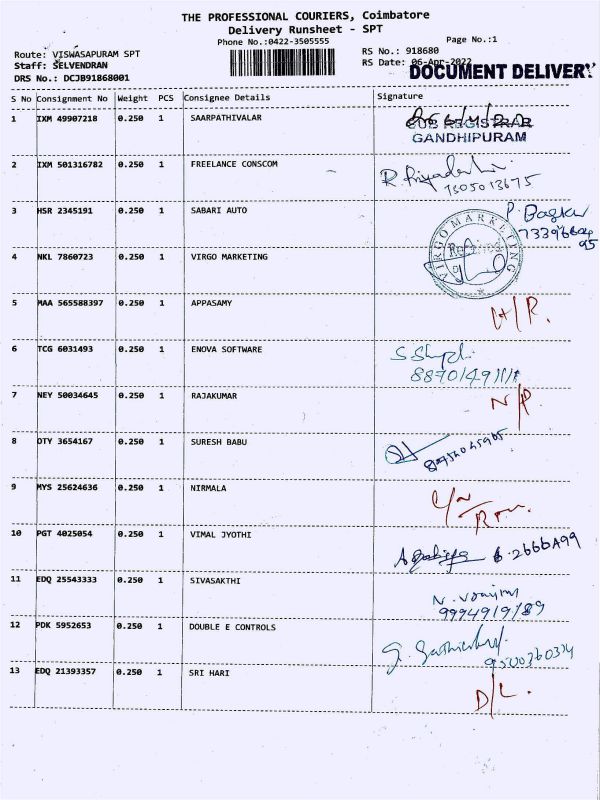 THE PROFESSIONAL COURIERS, Coimbatore
Delivery Runsheet - SPT
Phone No.:0422-3505555
Page No.:1
Route: VISWASAPURAM SPT
RS No.: 918680
Staff: SELVENDRAN
RS Date: 06-Apr-2022
DRS No.: DCJB91868001
DOCUMENT DELIVERY
S No Consignment No Weight PCS Consignee Details Signature
1 IXM 49907218 0.250 1 SAARPATHIVALAR
SUB REGISTRAR
GANDHIPURAM
2 IXM 501316782 0.250 1 FREELANCE CONSCOM
3 HSR 2345191 0.250 1 SABARI AUTO
P. Baskar
4 NKL 7860723 0.250 1 VIRGO MARKETING
VIRGO MARKETING
5 MAA 565588397 0.250 1 APPASAMY
6 TCG 6031493 0.250 1 ENOVA SOFTWARE
7 NEY 50034645 0.250 1 RAJAKUMAR
N/P
8 OTY 3654167 0.250 1 SURESH BABU
9 MYS 25624636 0.250 1 NIRMALA
10 PGT 4025054 0.250 1 VIMAL JYOTHI
11 EDQ 25543333 0.250 1 SIVASAKTHI
9994919189
12 PDK 5952653 0.250 1 DOUBLE E CONTROLS
13 EDQ 21393357 0.250 1 SRI HARI
D/L.